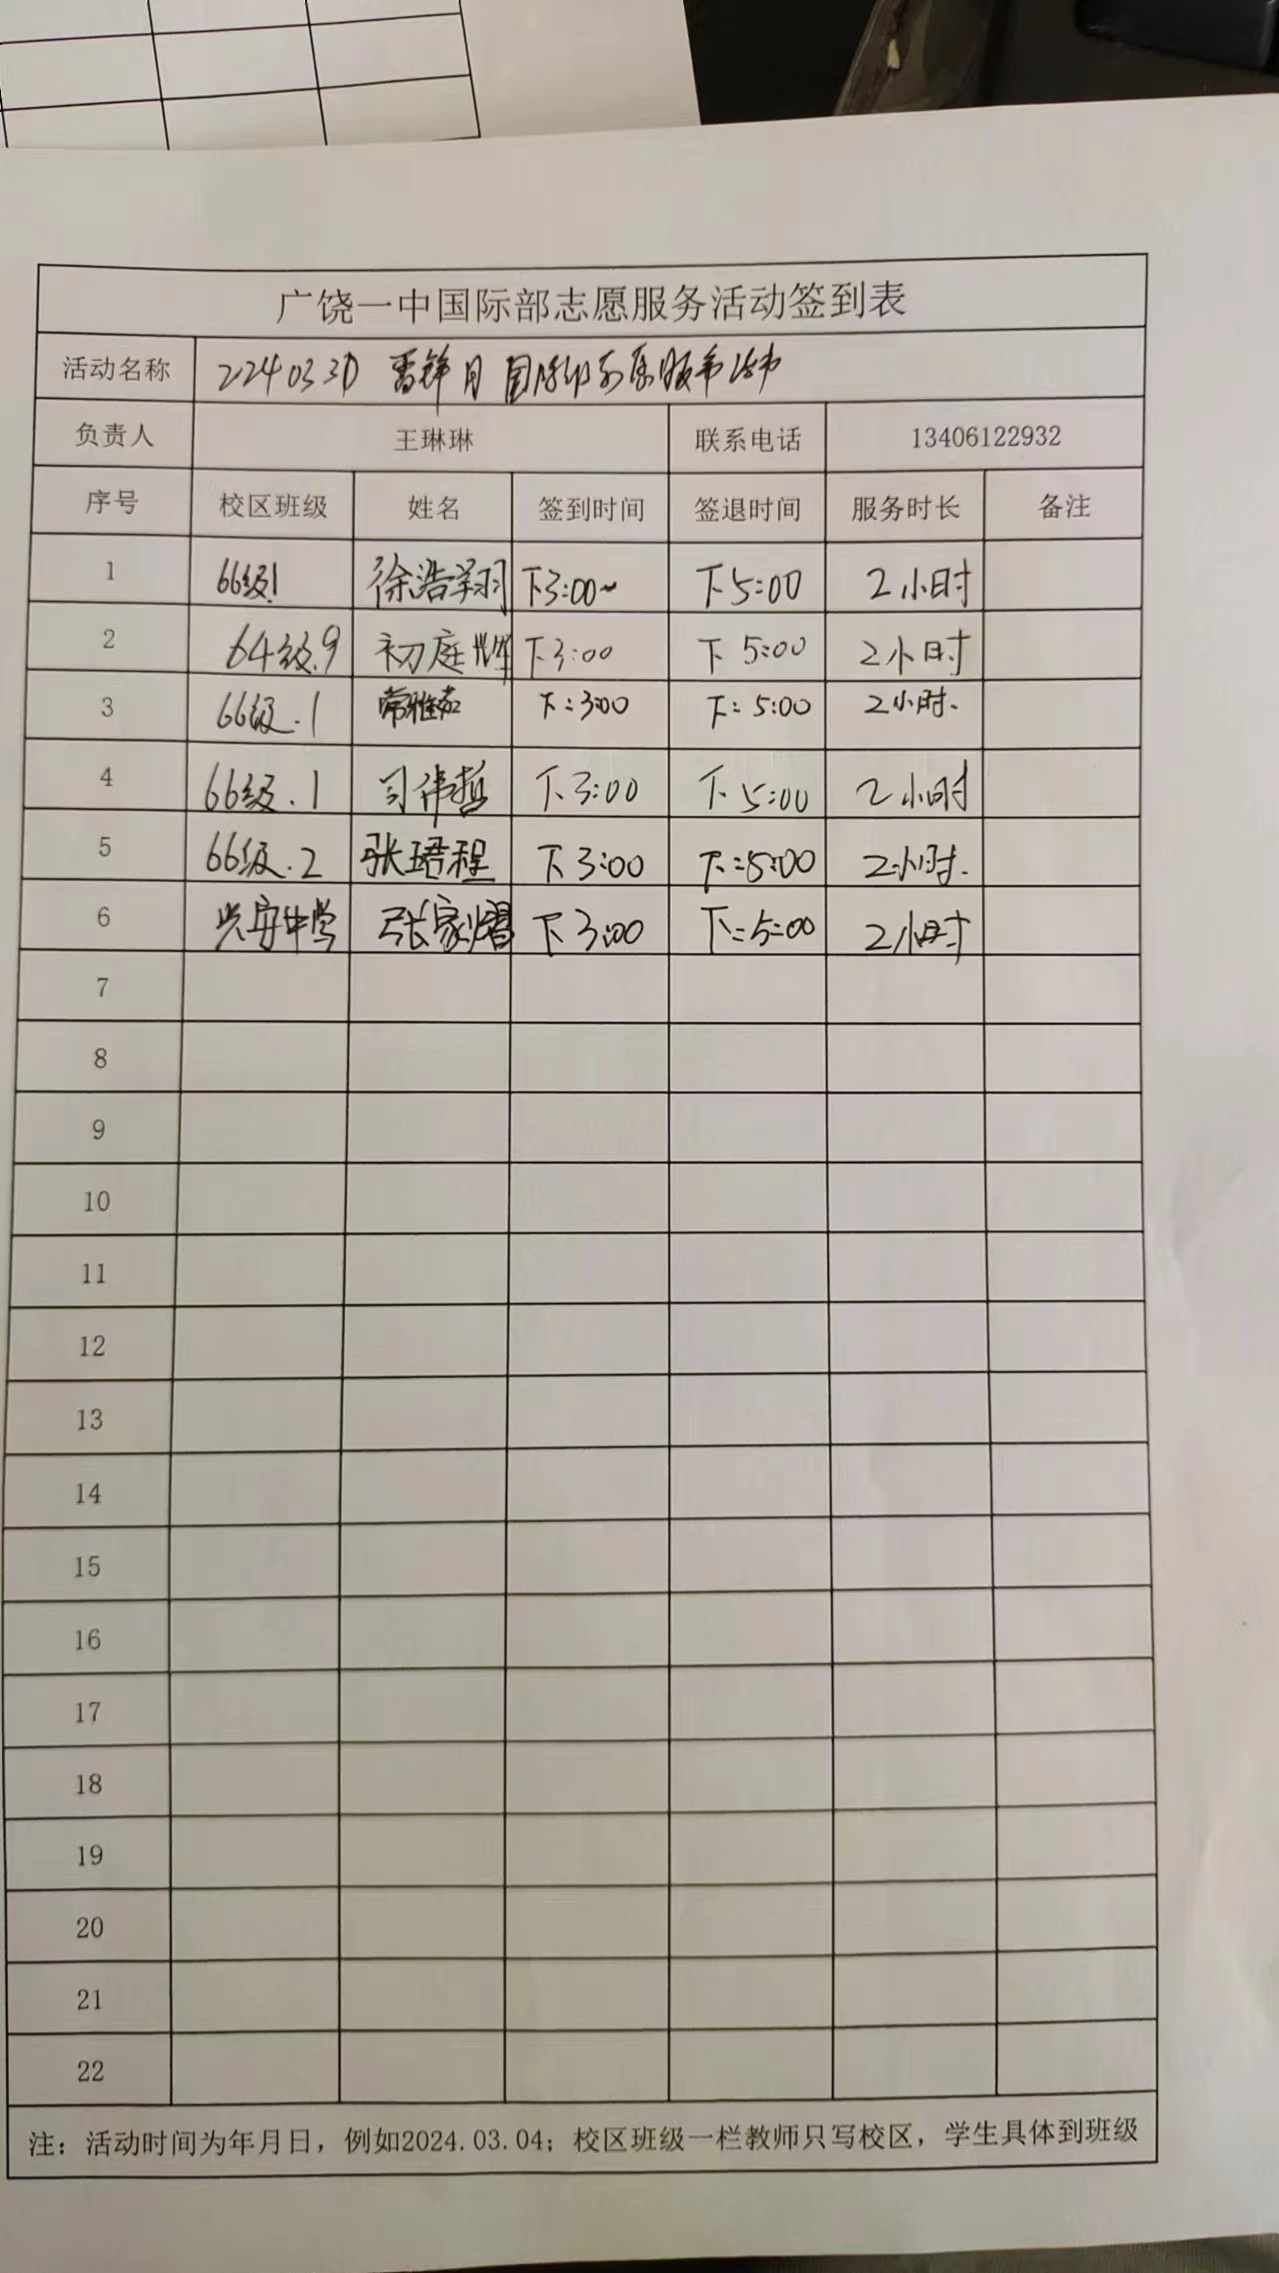 广饶一中国际部志愿服务活动签到表
活动名称 2240330 雷锋月 国际部志愿服务活动
负责人 王琳琳 联系电话 13406122932
序号 校区班级 姓名 签到时间 签退时间 服务时长 备注
1 66级1 徐浩翔 下3:00~ 下5:00 2小时
2 64级.9 初庭辉 下3:00 下5:00 2小时
3 66级.1 常雅茹 下:3:00 下:5:00 2小时.
4 66级.1 司伟哲 下3:00 下5:00 2小时
5 66级.2 张珺程 下3:00 下:5:00 2小时.
6 兴安中学 张家熠 下3:00 下:5:00 2小时
7
8
9
10
11
12
13
14
15
16
17
18
19
20
21
22
注：活动时间为年月日，例如2024.03.04；校区班级一栏教师只写校区，学生具体到班级